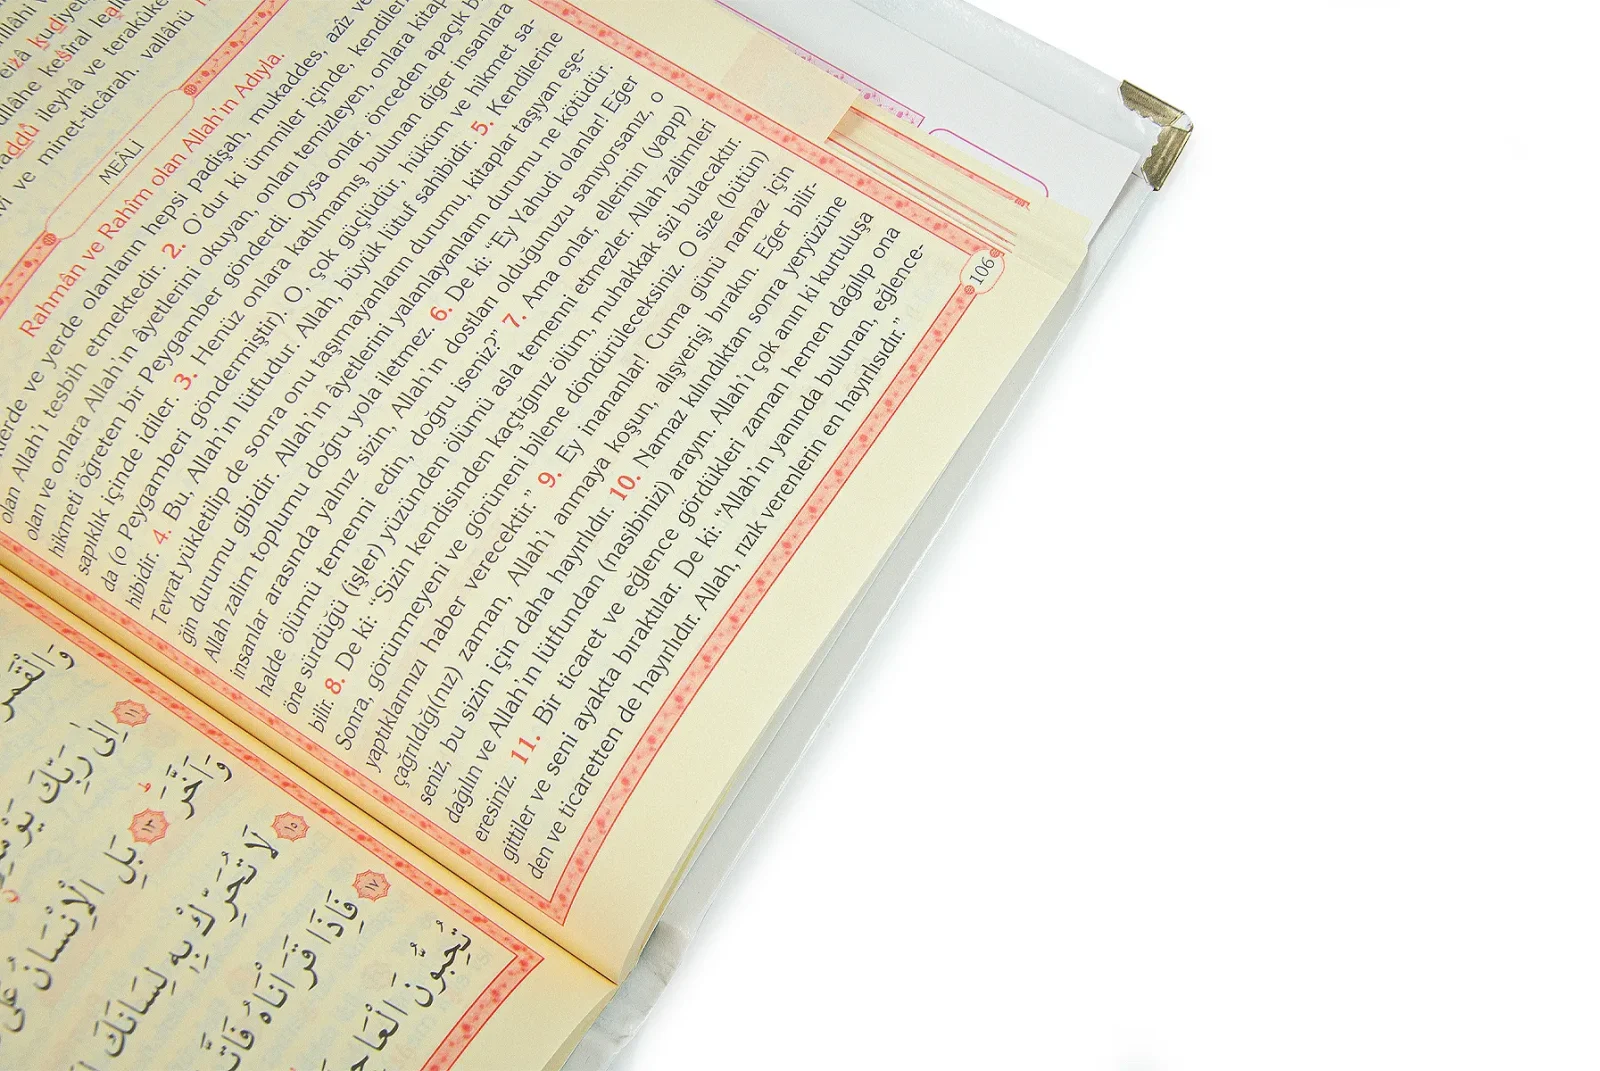 kudiyet
keśîral
ileyhâ ve terakûke
vî ve minet-ticârah. vallâhü
MEÂLİ
Rahmân ve Rahîm olan Allah'ın Adıyla.
ve yerde olanların hepsi padişah, mukaddes, azîz ve
olan Allah'ı tesbih etmektedir. 2. O'dur ki ümmiler içinde, kendilerin
olan ve onlara Allah'ın âyetlerini okuyan, onları temizleyen, onlara kitap
hikmeti öğreten bir Peygamber gönderdi. Oysa onlar, önceden apaçık b
sapıklık içinde idiler. 3. Henüz onlara katılmamış bulunan diğer insanlara
da (o Peygamberi göndermiştir). O, çok güçlüdür, hüküm ve hikmet sa-
hibidir. 4. Bu, Allah'ın lütfudur. Allah, büyük lütuf sahibidir. 5. Kendilerine
Tevrat yükletilip de sonra onu taşımayanların durumu, kitaplar taşıyan eşe-
ğin durumu gibidir. Allah'ın âyetlerini yalanlayanların durumu ne kötüdür.
Allah zalim toplumu doğru yola iletmez. 6. De ki: “Ey Yahudi olanlar! Eğer
insanlar arasında yalnız sizin, Allah'ın dostları olduğunuzu sanıyorsanız, o
halde ölümü temenni edin, doğru iseniz?” 7. Ama onlar, ellerinin (yapıp)
öne sürdüğü (işler) yüzünden ölümü asla temenni etmezler. Allah zalimleri
bilir. 8. De ki: “Sizin kendisinden kaçtığınız ölüm, muhakkak sizi bulacaktır.
Sonra, görünmeyeni ve görüneni bilene döndürüleceksiniz. O size (bütün)
yaptıklarınızı haber verecektir.” 9. Ey inananlar! Cuma günü namaz için
çağrıldığı(nız) zaman, Allah'ı anmaya koşun, alışverişi bırakın. Eğer bilir-
seniz, bu sizin için daha hayırlıdır. 10. Namaz kılındıktan sonra yeryüzüne
dağılın ve Allah'ın lütfundan (nasibinizi) arayın. Allah'ı çok anın ki kurtuluşa
eresiniz. 11. Bir ticaret ve eğlence gördükleri zaman hemen dağılıp ona
gittiler ve seni ayakta bıraktılar. De ki: “Allah'ın yanında bulunan, eğlence-
den ve ticaretten de hayırlıdır. Allah, rızık verenlerin en hayırlısıdır.”
106
وَالْقَمَرُ
١١ اِلٰى رَبِّكَ يَوْمَئِذٍ
وَاَخَّرَ ١٣ بَلِ الْاِنْسَانُ عَلٰى
١٥ لَا تُحَرِّكْ بِهٖ لِسَانَكَ
١٧ فَاِذَا قَرَأْنَاهُ فَاتَّبِعْ
تُحِبُّونَ الْعَاجِ